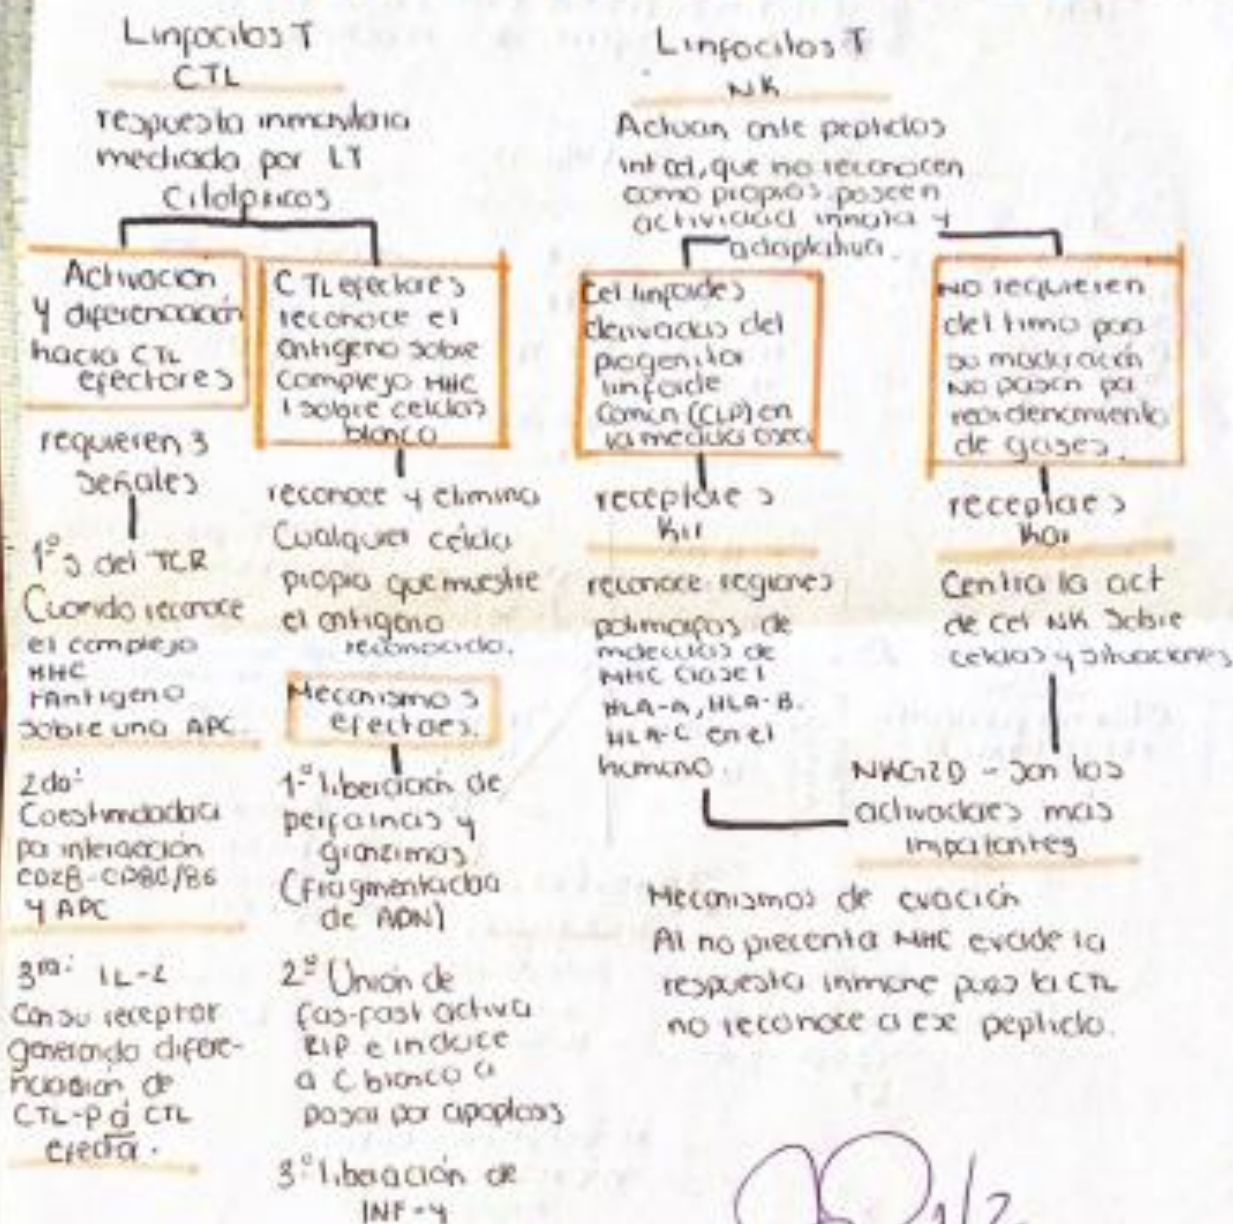 Linfocitos T
CTL
respuesta inmunitaria
mediada por LT
Citotóxicos
Activacion
y diferenciación
hacia CTL
efectores
requieren 3
señales
1º s del TCR
Cuando reconoce
el complejo
MHC
+Antigeno
sobre una APC.
2da:
Coestimuladora
por interacción
CD28-CD80/86
y APC
3ra: IL-2
Con su receptor
generando difere-
nciacion de
CTL-P a CTL
efector.
CTL efectores
reconoce el
antigeno sobre
complejo MHC
I sobre celulas
blanco
reconoce y elimina
Cualquier célula
propia que muestre
el antigeno
reconocido.
Mecanismos
efectores.
1º liberación de
perforinas y
granzimas
(fragmentación
de ADN)
2º Unión de
fas-fasl activa
RIP e induce
a C blanco a
pasar por apoptosis
3º liberación de
INF-γ
Linfocitos T
NK
Actuan ante peptidos
int cel, que no reconocen
como propios poseen
actividad innata y
adaptativa.
Cel linfoides
derivadas del
progenitor
linfoide
Común (CLP) en
la medula osea
receptores
Kir
reconoce regiones
polimorfas de
moleculas de
MHC Clase I
HLA-A, HLA-B.
HLA-C en el
humano.
NO requieren
del timo para
su maduración
No pasan por
reordenamiento
de genes.
receptores
Kar
Centra la act
de cel NK Sobre
celulas y situaciones
NKG2D - Son los
activadores mas
importantes
Mecanismos de evación
Al no precenta MHC evade la
respuesta inmune pues la CTL
no reconoce a ese peptido.
1/2